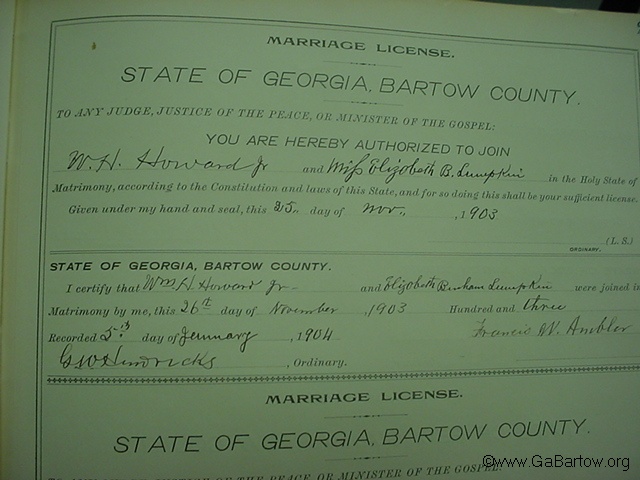 MARRIAGE LICENSE.
STATE OF GEORGIA, BARTOW COUNTY.
TO ANY JUDGE, JUSTICE OF THE PEACE, OR MINISTER OF THE GOSPEL:
YOU ARE HEREBY AUTHORIZED TO JOIN
W. H. Howard Jr and Miss Elizabeth B. Lumpkin in the Holy State of
Matrimony, according to the Constitution and laws of this State, and for so doing this shall be your sufficient license.
Given under my hand and seal, this 25 day of Nov., 1903
(L. S.)
ORDINARY.
STATE OF GEORGIA, BARTOW COUNTY.
I certify that Wm H Howard Jr and Elizabeth Lumpkin were joined in
Matrimony by me, this 26th day of November, 1903 Hundred and three
Recorded 5th day of Jennuary, 1904 Francis W. Ambler
G W Hendricks, Ordinary.
MARRIAGE LICENSE.
STATE OF GEORGIA, BARTOW COUNTY.
OF THE PEACE, OR MINISTER OF THE GOSPEL:
©www.GaBartow.org